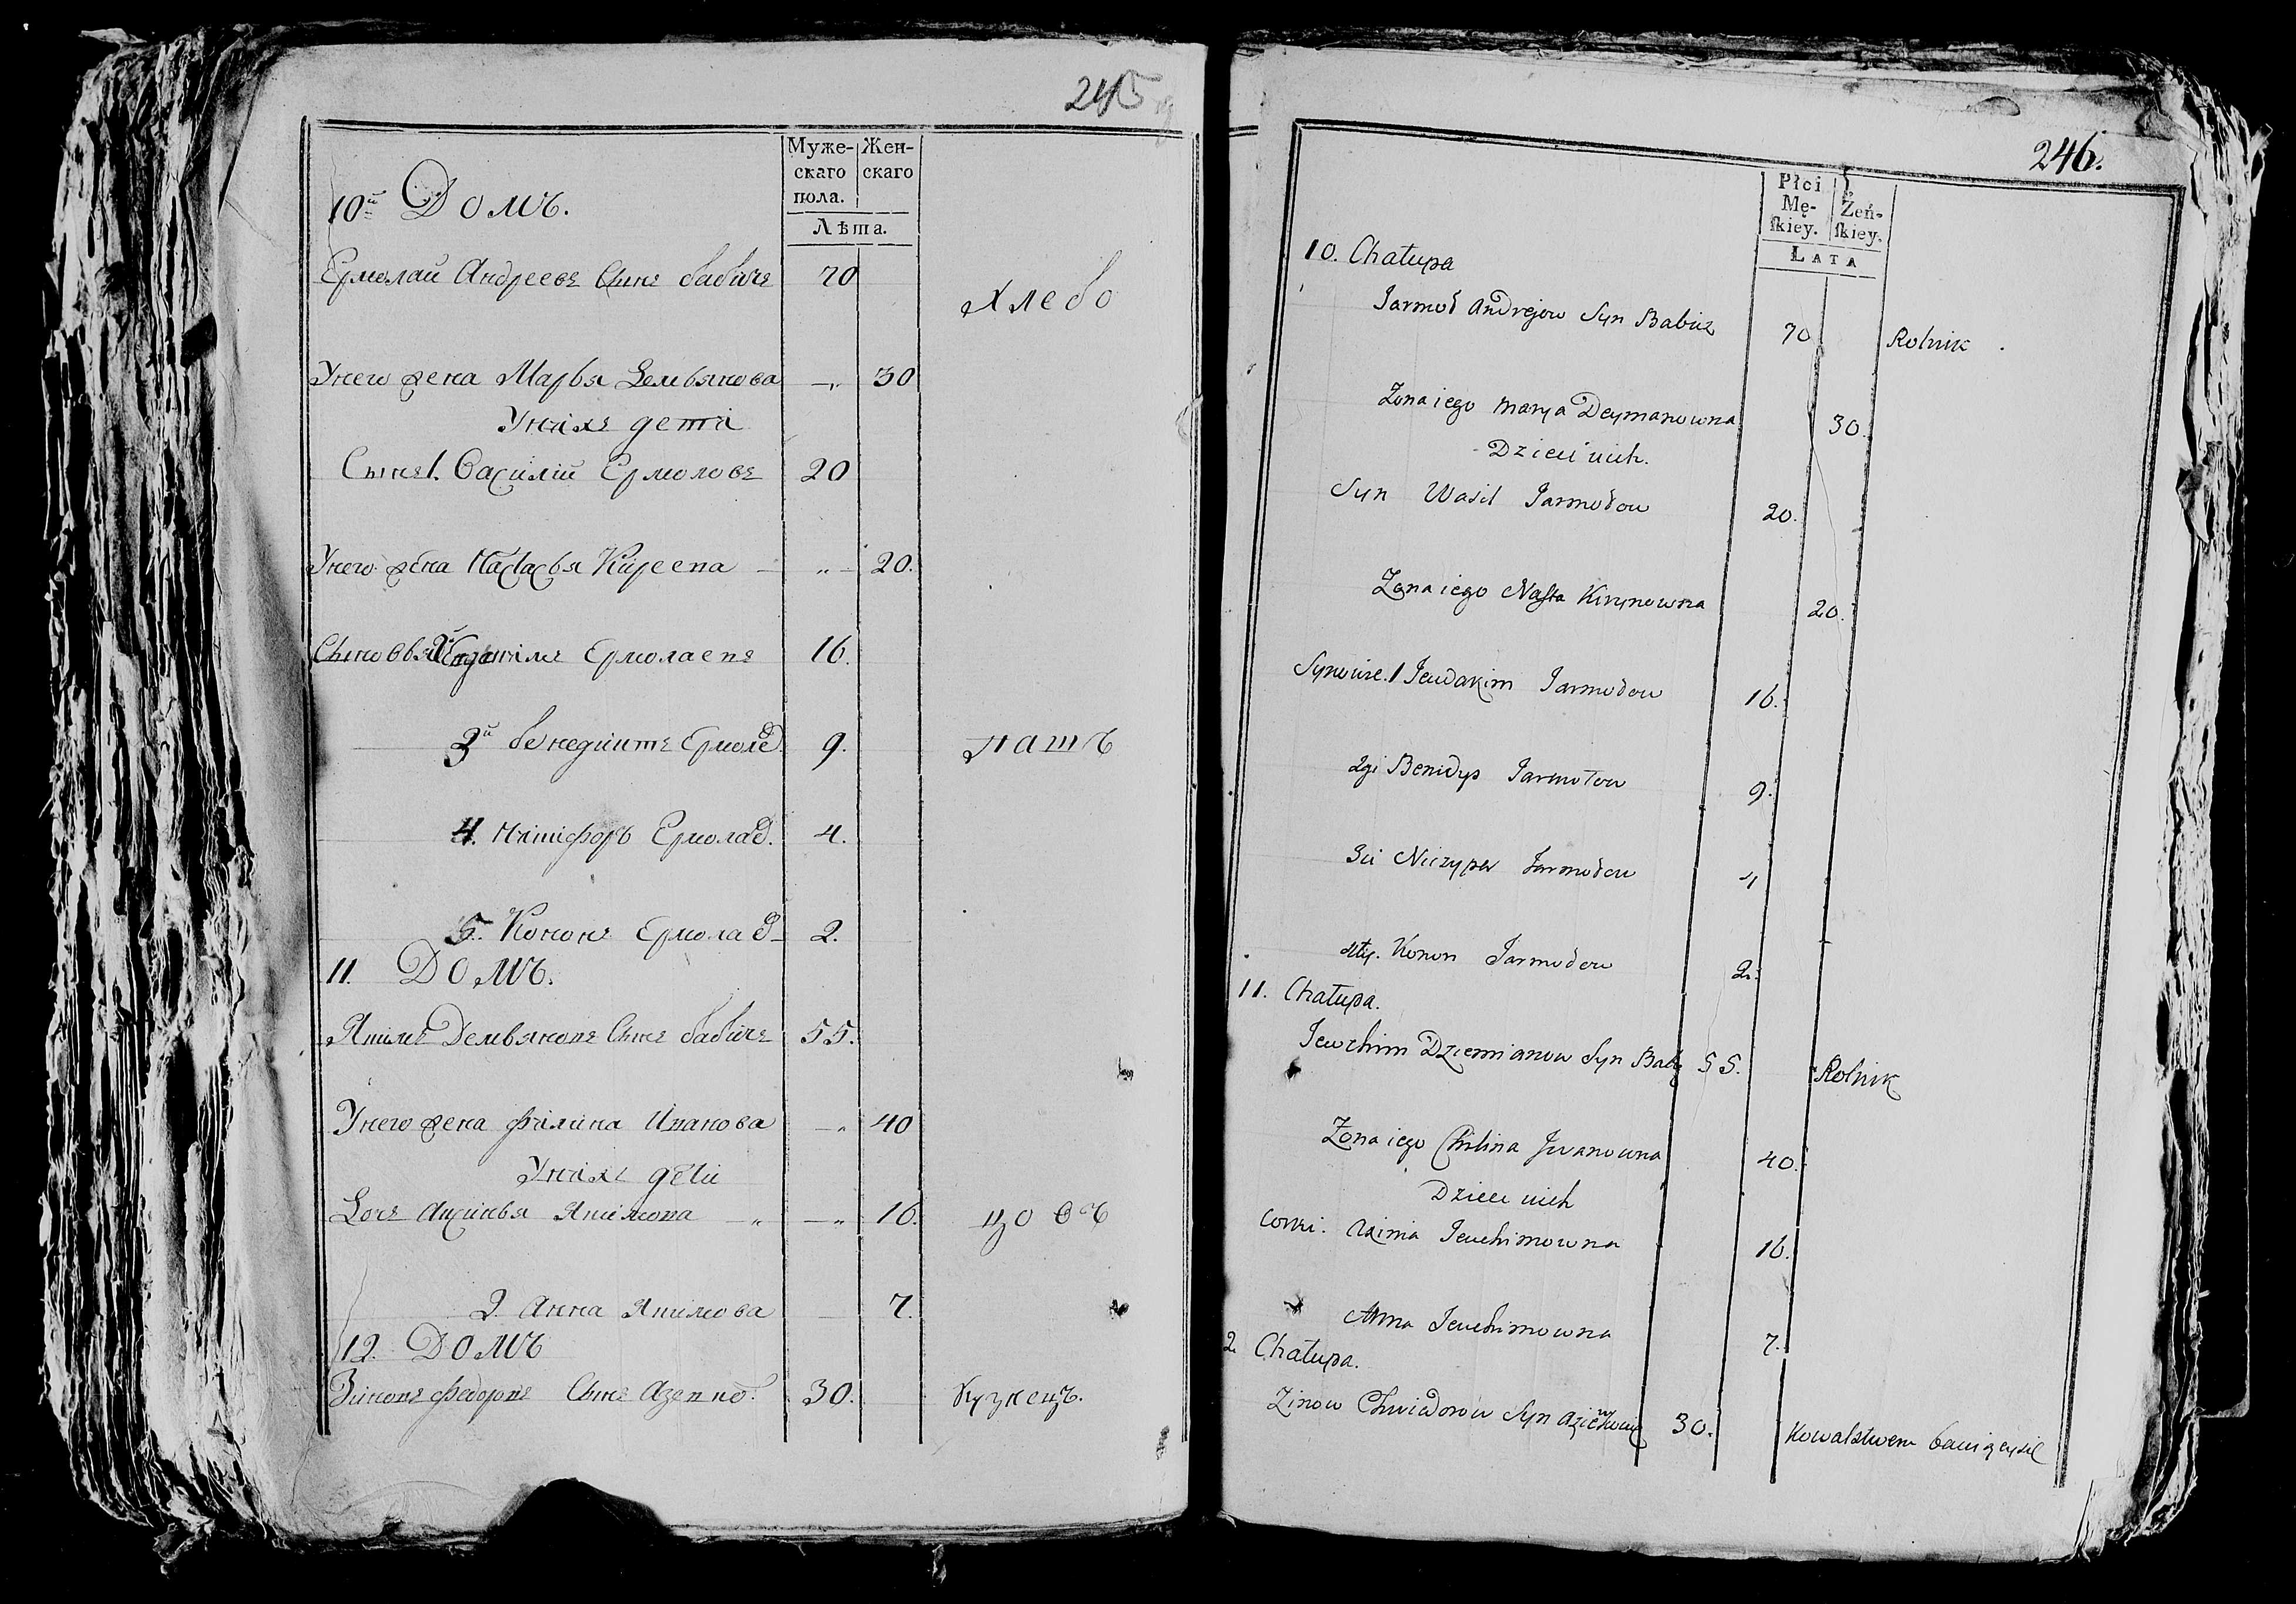 245
Муже-
скаго
пола.
Жен-
скаго
Лѣта.
10й Домъ.
Ермолай Андреевъ Сынъ бабичъ 70
хлебо
Унего жена Марья Демьянова —„ 30
Унихъ дети
Сынъ 1. Василій Ермоловъ 20
Унего жена Настасья Киреева — „ — 20.
Сыновья 2й Ермолаевъ 16.
3й бенедиктъ Ермолов 9.
пашъ
4. Никифоръ Ермолаев. 4.
5. Кононъ Ермолав 2.
11. Домъ.
Якимъ Демьяновъ Сынъ бабичъ 55.
Унего жена Филина Иванова —„ 40
Унихъ дети
Дочь Аксинья Якимова —„ —„ 16.
цовъ
2. Анна Якимова — 7.
12. Домъ
Зиновъ Федоровъ Сынъ 30.
Кузнецъ.
246.
Płci
Mę-
ſkiey.
Żeń-
ſkiey.
LATA
10. Chałupa
Jarmoł Andrejow Syn Babicz 70 Rolnik.
Zona iego Marya Deymanowna 30.
Dzieci uich.
Syn Wasil Jarmołow 20.
Zona iego Nasta Kirynowna 20.
Synowie. 1 Jewdakim Jarmołow 16.
2gi Benidyp Jarmołow 9.
3ci Niczyper Jarmołow 4
4ty. Konon Jarmołow 2.
11. Chałupa.
Jewchim Dziemianow Syn Bab 55. Rolnik
Zona iego Chilina Jwanowna 40.
Dzieci uich
Corki. Axinia Jewchimowna 16.
Anna Jewchimowna 7.
2. Chałupa.
Zinow Chwiedorow Syn 30. Kowalstwem bawiący się